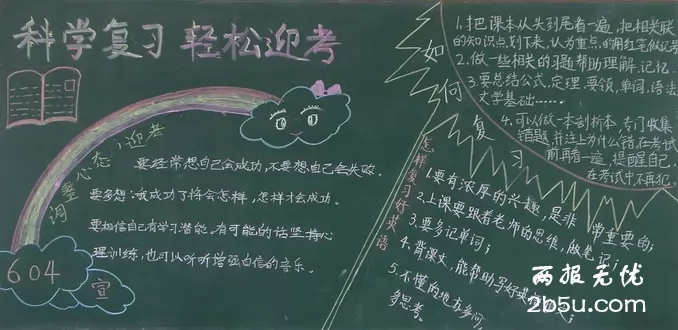 科学复习 轻松迎考
调整心态,迎考
要经常想自己会成功,不要想自己会失败。
要多想:我成功了将会怎样,怎样才会成功。
要相信自己有学习潜能。有可能的话坚持心
理训练,也可以听听增强自信的音乐。
604
宣
如何复习
1.把课本从头到尾看一遍,把相关联
的知识点划下来,认为重点的用红笔做记号
2.做一些相关的习题帮助理解、记忆.
3.要总结公式、定理、要领,单词,语法
文学基础……
4.可以做一本剖析本,专门收集
错题,并注上为什么错,在考试
前再看一遍,提醒自己.
在考试中不再犯.
怎样复习好英语
1.要有浓厚的兴趣,是非常重要的;
2.上课要跟着老师的思维,做笔记;
3.要多记单词;
4.背课文,能帮助写好英
5.不懂的地方多问
多思考。
两报无忧
2b5u.com